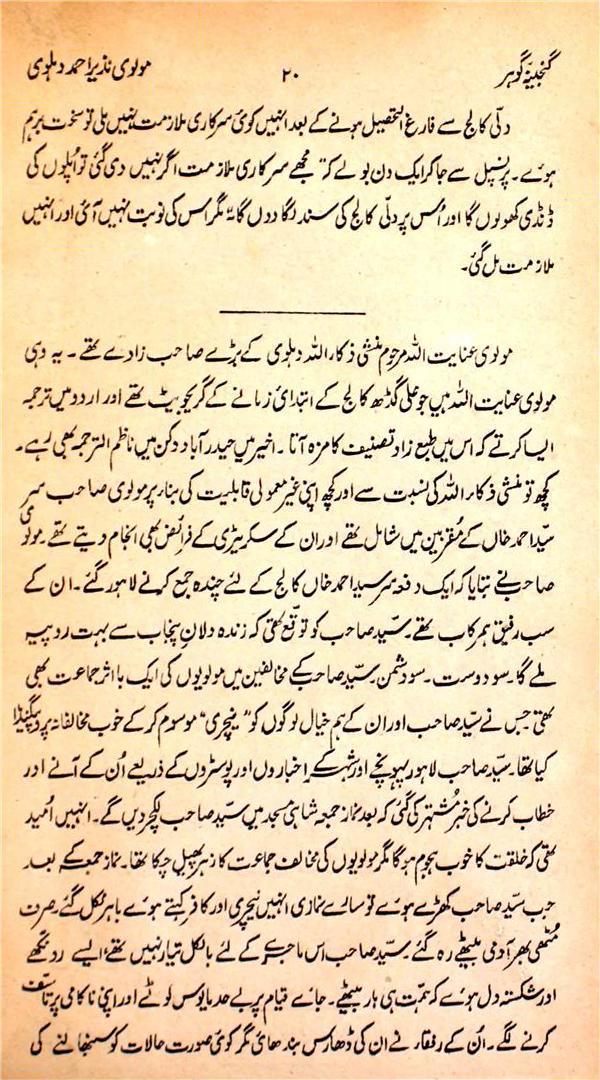 گنجینۂ گوہر
۲۰
مولوی نذیر احمد دہلوی
دلّی کالج سے فارغ التحصیل ہونے کے بعد انہیں کوئی سرکاری ملازمت نہیں ملی تو سخت برہم
ہوئے۔ پرنسپل سے جا کر ایک دن بولے کہ "مجھے سرکاری ملازمت اگر نہیں دی گئی تو اُپلوں کی
ڈنڈی کھولوں گا اور اُس پر دلّی کالج کی سند لگا دوں گا" مگر اس کی نوبت نہیں آئی اور انہیں
ملازمت مل گئی۔
مولوی عنایت اللہ مرحوم منشی ذکاء اللہ دہلوی کے بڑے صاحب زادے تھے۔ یہ وہی
مولوی عنایت اللہ ہیں جو علی گڈھ کالج کے ابتدائی زمانے کے گریجویٹ تھے اور اردو میں ترجمہ
ایسا کرتے کہ اس میں طبع زاد تصنیف کا مزہ آتا۔ اخیر میں حیدرآباد دکن میں ناظم الترجمہ بھی رہے۔
کچھ تو منشی ذکاء اللہ کی نسبت سے اور کچھ اپنی غیر معمولی قابلیت کی بناء پر مولوی صاحب سر
سیّد احمد خاں کے مُقربین میں شامل تھے اور ان کے سکریٹری کے فرائض بھی انجام دیتے تھے۔ مولوی
صاحب نے بتایا کہ ایک دفعہ سر سید احمد خاں کالج کے لئے چندہ جمع کرنے لاہور گئے۔ ان کے
سب رفیق ہم رکاب تھے۔ سیّد صاحب کو توقّع تھی کہ زندہ دلانِ پنجاب سے بہت روپیہ
ملے گا۔ سو دوست۔ سو دشمن۔ سیّد صاحب کے مخالفین میں مولویوں کی ایک با اثر جماعت بھی
تھی جس نے سیّد صاحب اور ان کے ہم خیال لوگوں کو "نیچری" موسوم کر کے خوب مخالفانہ پروپیگنڈا
کیا تھا۔ سیّد صاحب لاہور پہونچے اور شہر کے اخباروں اور پوسٹروں کے ذریعے اُن کے آنے اور
خطاب کرنے کی خبر مُشتہر کی گئی کہ بعد نماز جمعہ شاہی مسجد میں سیّد صاحب لکچر دیں گے۔ انہیں اُمید
تھی کہ خلقت کا خوب ہجوم ہوگا مگر مولویوں کی مخالف جماعت کا زہر پھیل چکا تھا۔ نماز جمعہ کے بعد
جب سیّد صاحب کھڑے ہوئے تو سارے نمازی انہیں نیچری اور کافر کہتے ہوئے باہر نکل گئے۔ صرف
مُٹھی بھر آدمی بیٹھے رہ گئے۔ سیّد صاحب اس ماجرے کے لئے بالکل تیار نہیں تھے، ایسے رد تکھے
اور شکستہ دل ہوئے کہ ہمّت ہی ہار بیٹھے۔ جائے قیام پر بے حد مایوس لوٹے اور اپنی ناکامی پر تاسّف
کرنے لگے۔ اُن کے رفقاء نے ان کی ڈھارس بندھائی مگر کوئی صورت حالات کو سنبھالنے کی